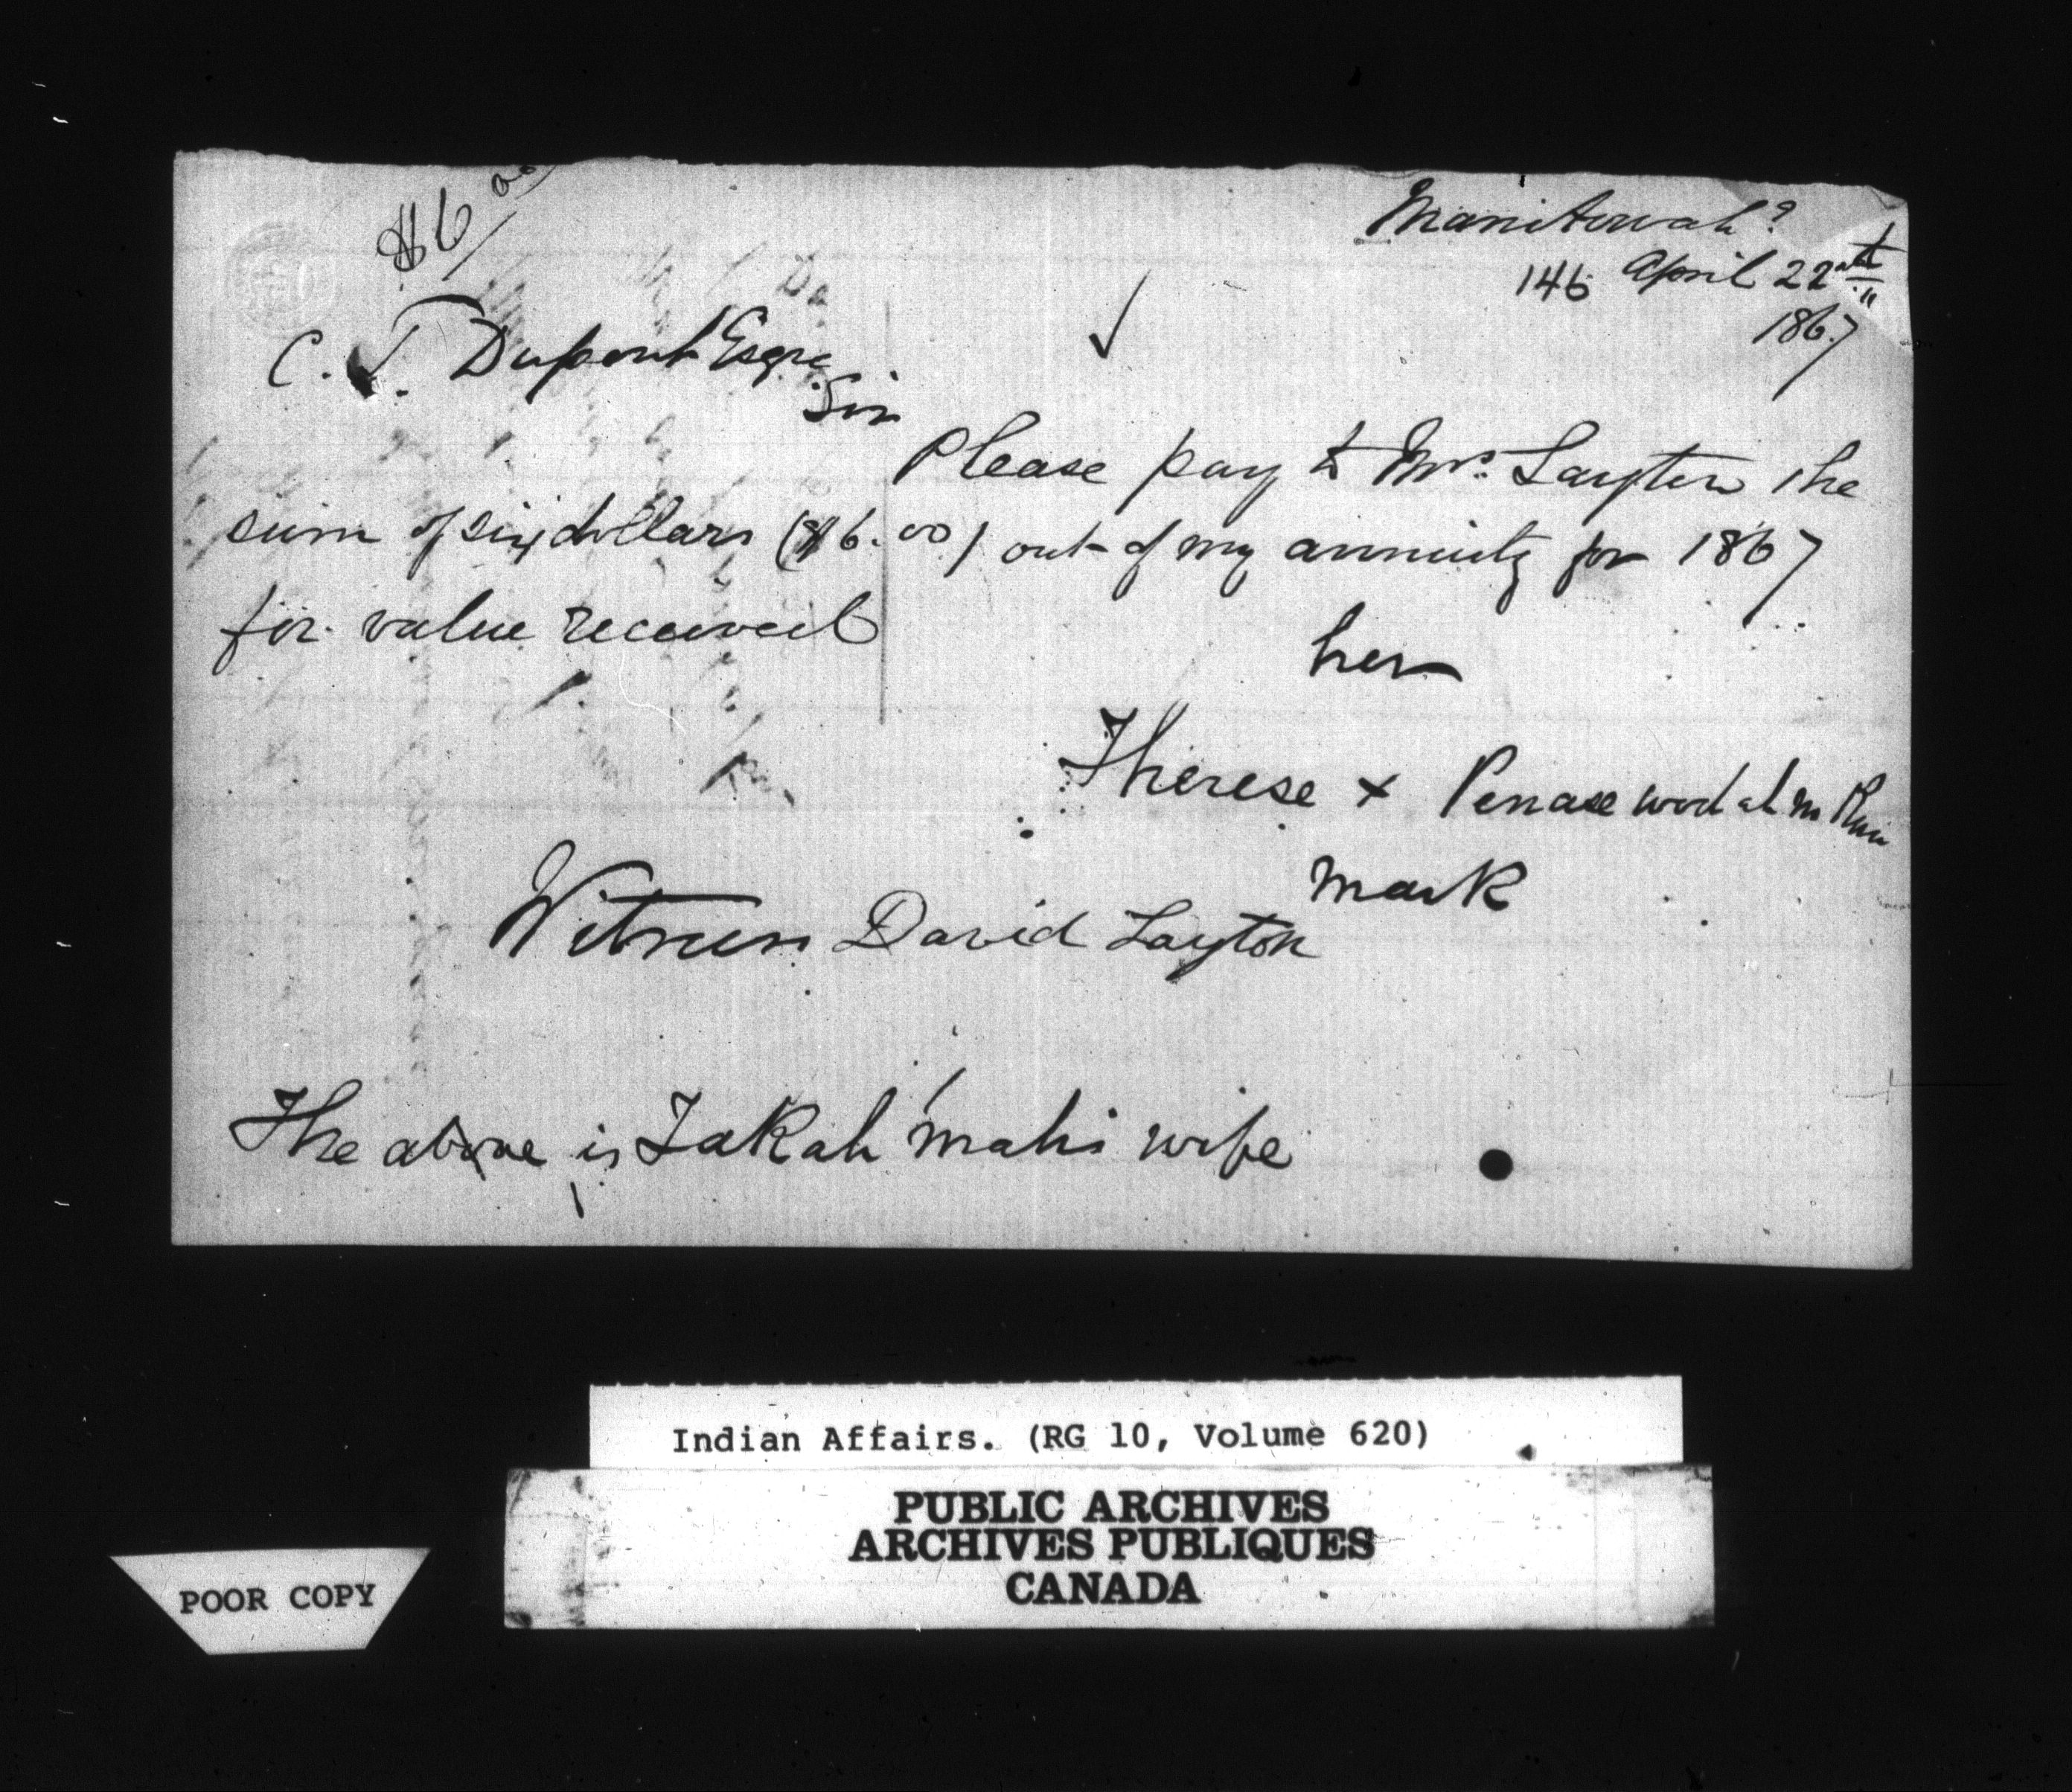 $6/00
Manitowah?
146 April 22nd
1867
C. T. Dupont Esqre
Sir
Please pay to Mrs. Layton the
sum of six dollars ($6.00) out of my annuity for 1867
for value received
her
Therese x Penase wod ah m
mark
Witness David Layton
The above is Takah mahi wife
Indian Affairs. (RG 10, Volume 620)
PUBLIC ARCHIVES
ARCHIVES PUBLIQUES
CANADA
POOR COPY